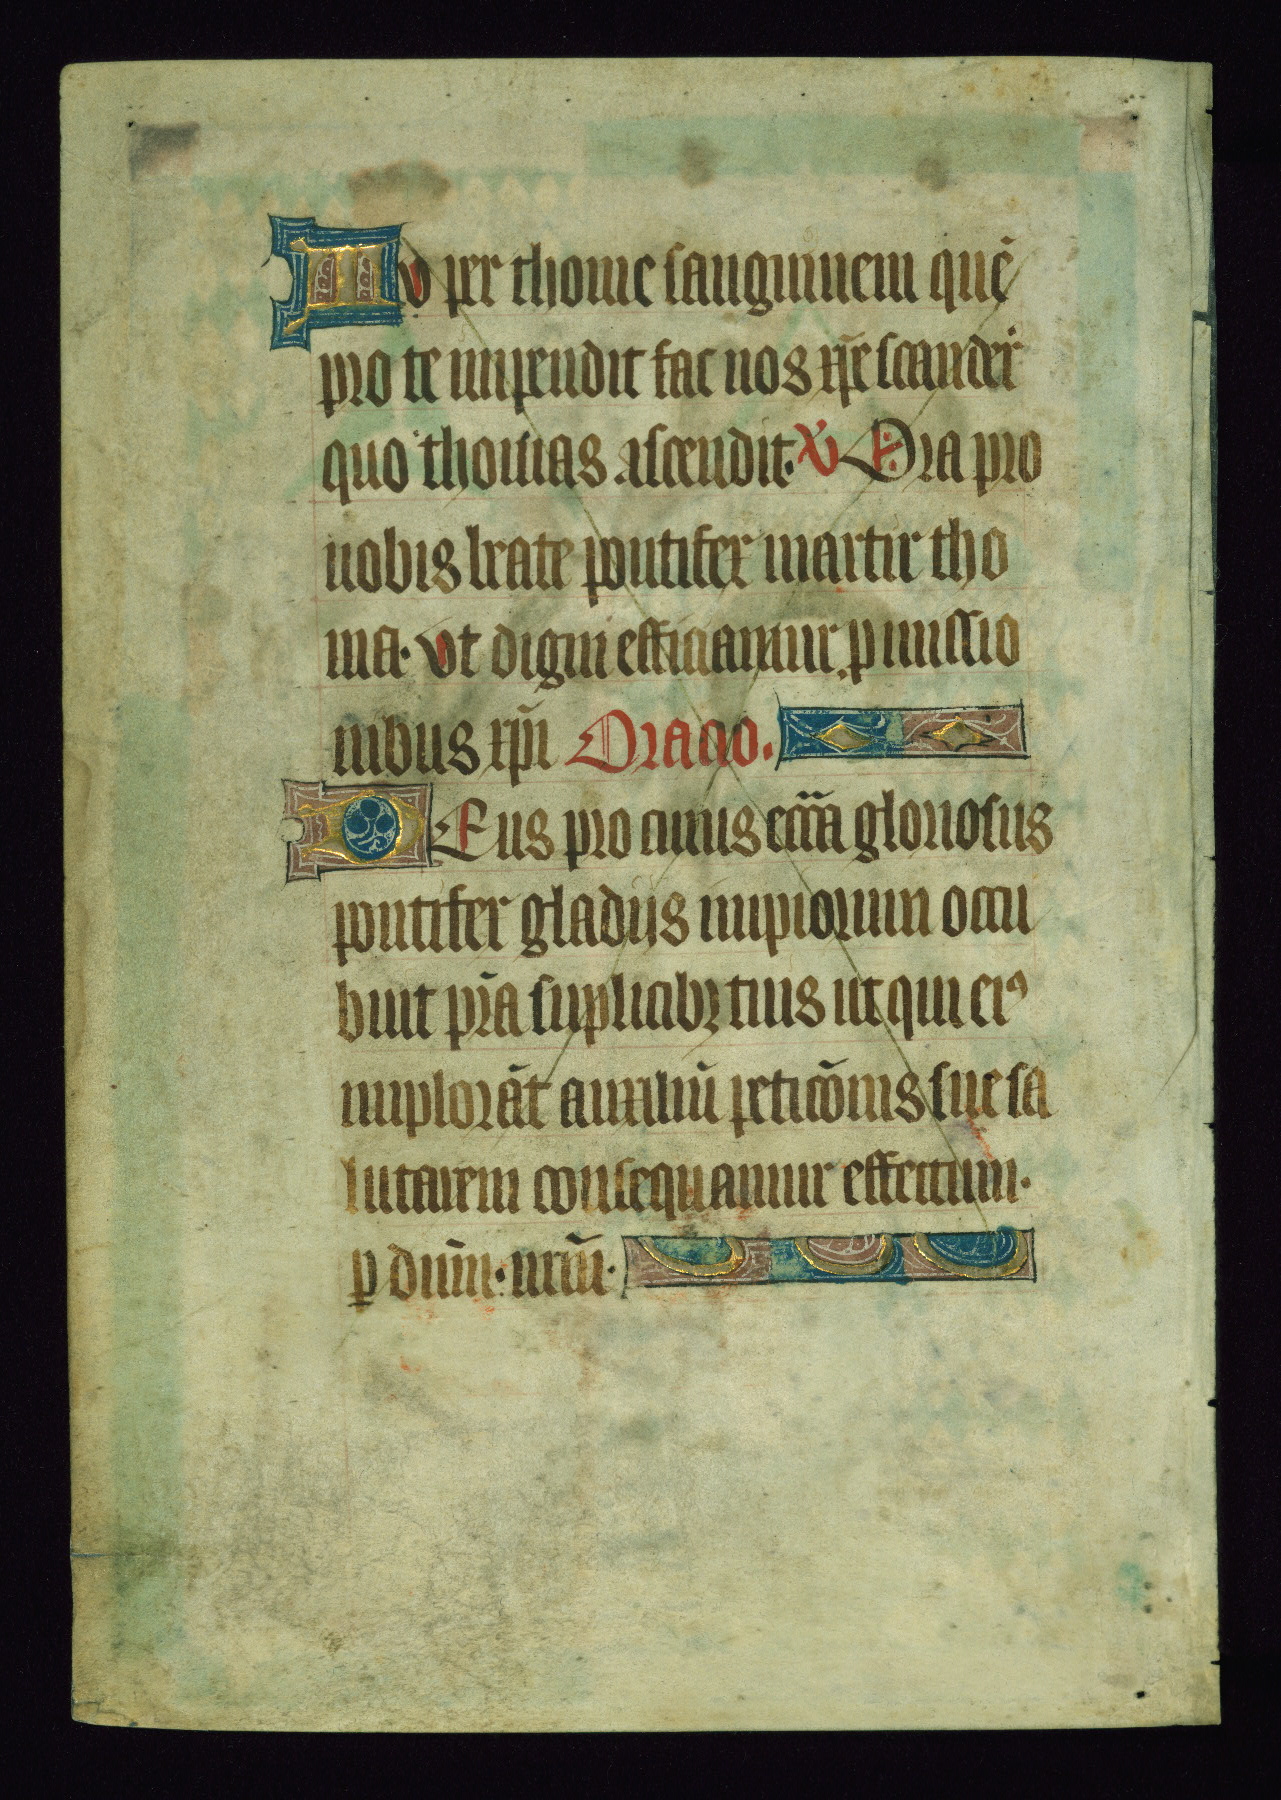 Tu per thome sanguinem quē
pro te impendit fac nos xp̄e scander̄
quo thomas ascendit. V Ora pro
nobis beate pontifex martir tho
ma. Vt digni efficiamur ꝓmissio
nibus xp̄i Oracio.
DEus pro cuius ecc̄ia gloriosus
pontifex gladiis impiorum occu
buit pr̄a suplicibꝫ tuis ut qui eiꝰ
implorāt auxiliū peticōnis sue sa
lutarem consequamur effectum.
ꝑ dum̄. nrm̄.